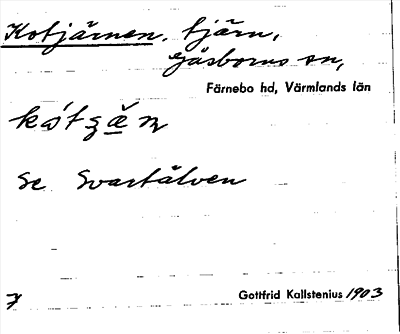 Kotjärnen, tjärn,
Gåsborns sn,
Färnebo hd, Värmlands län
se Svartälven
Gottfrid Kallstenius 1903